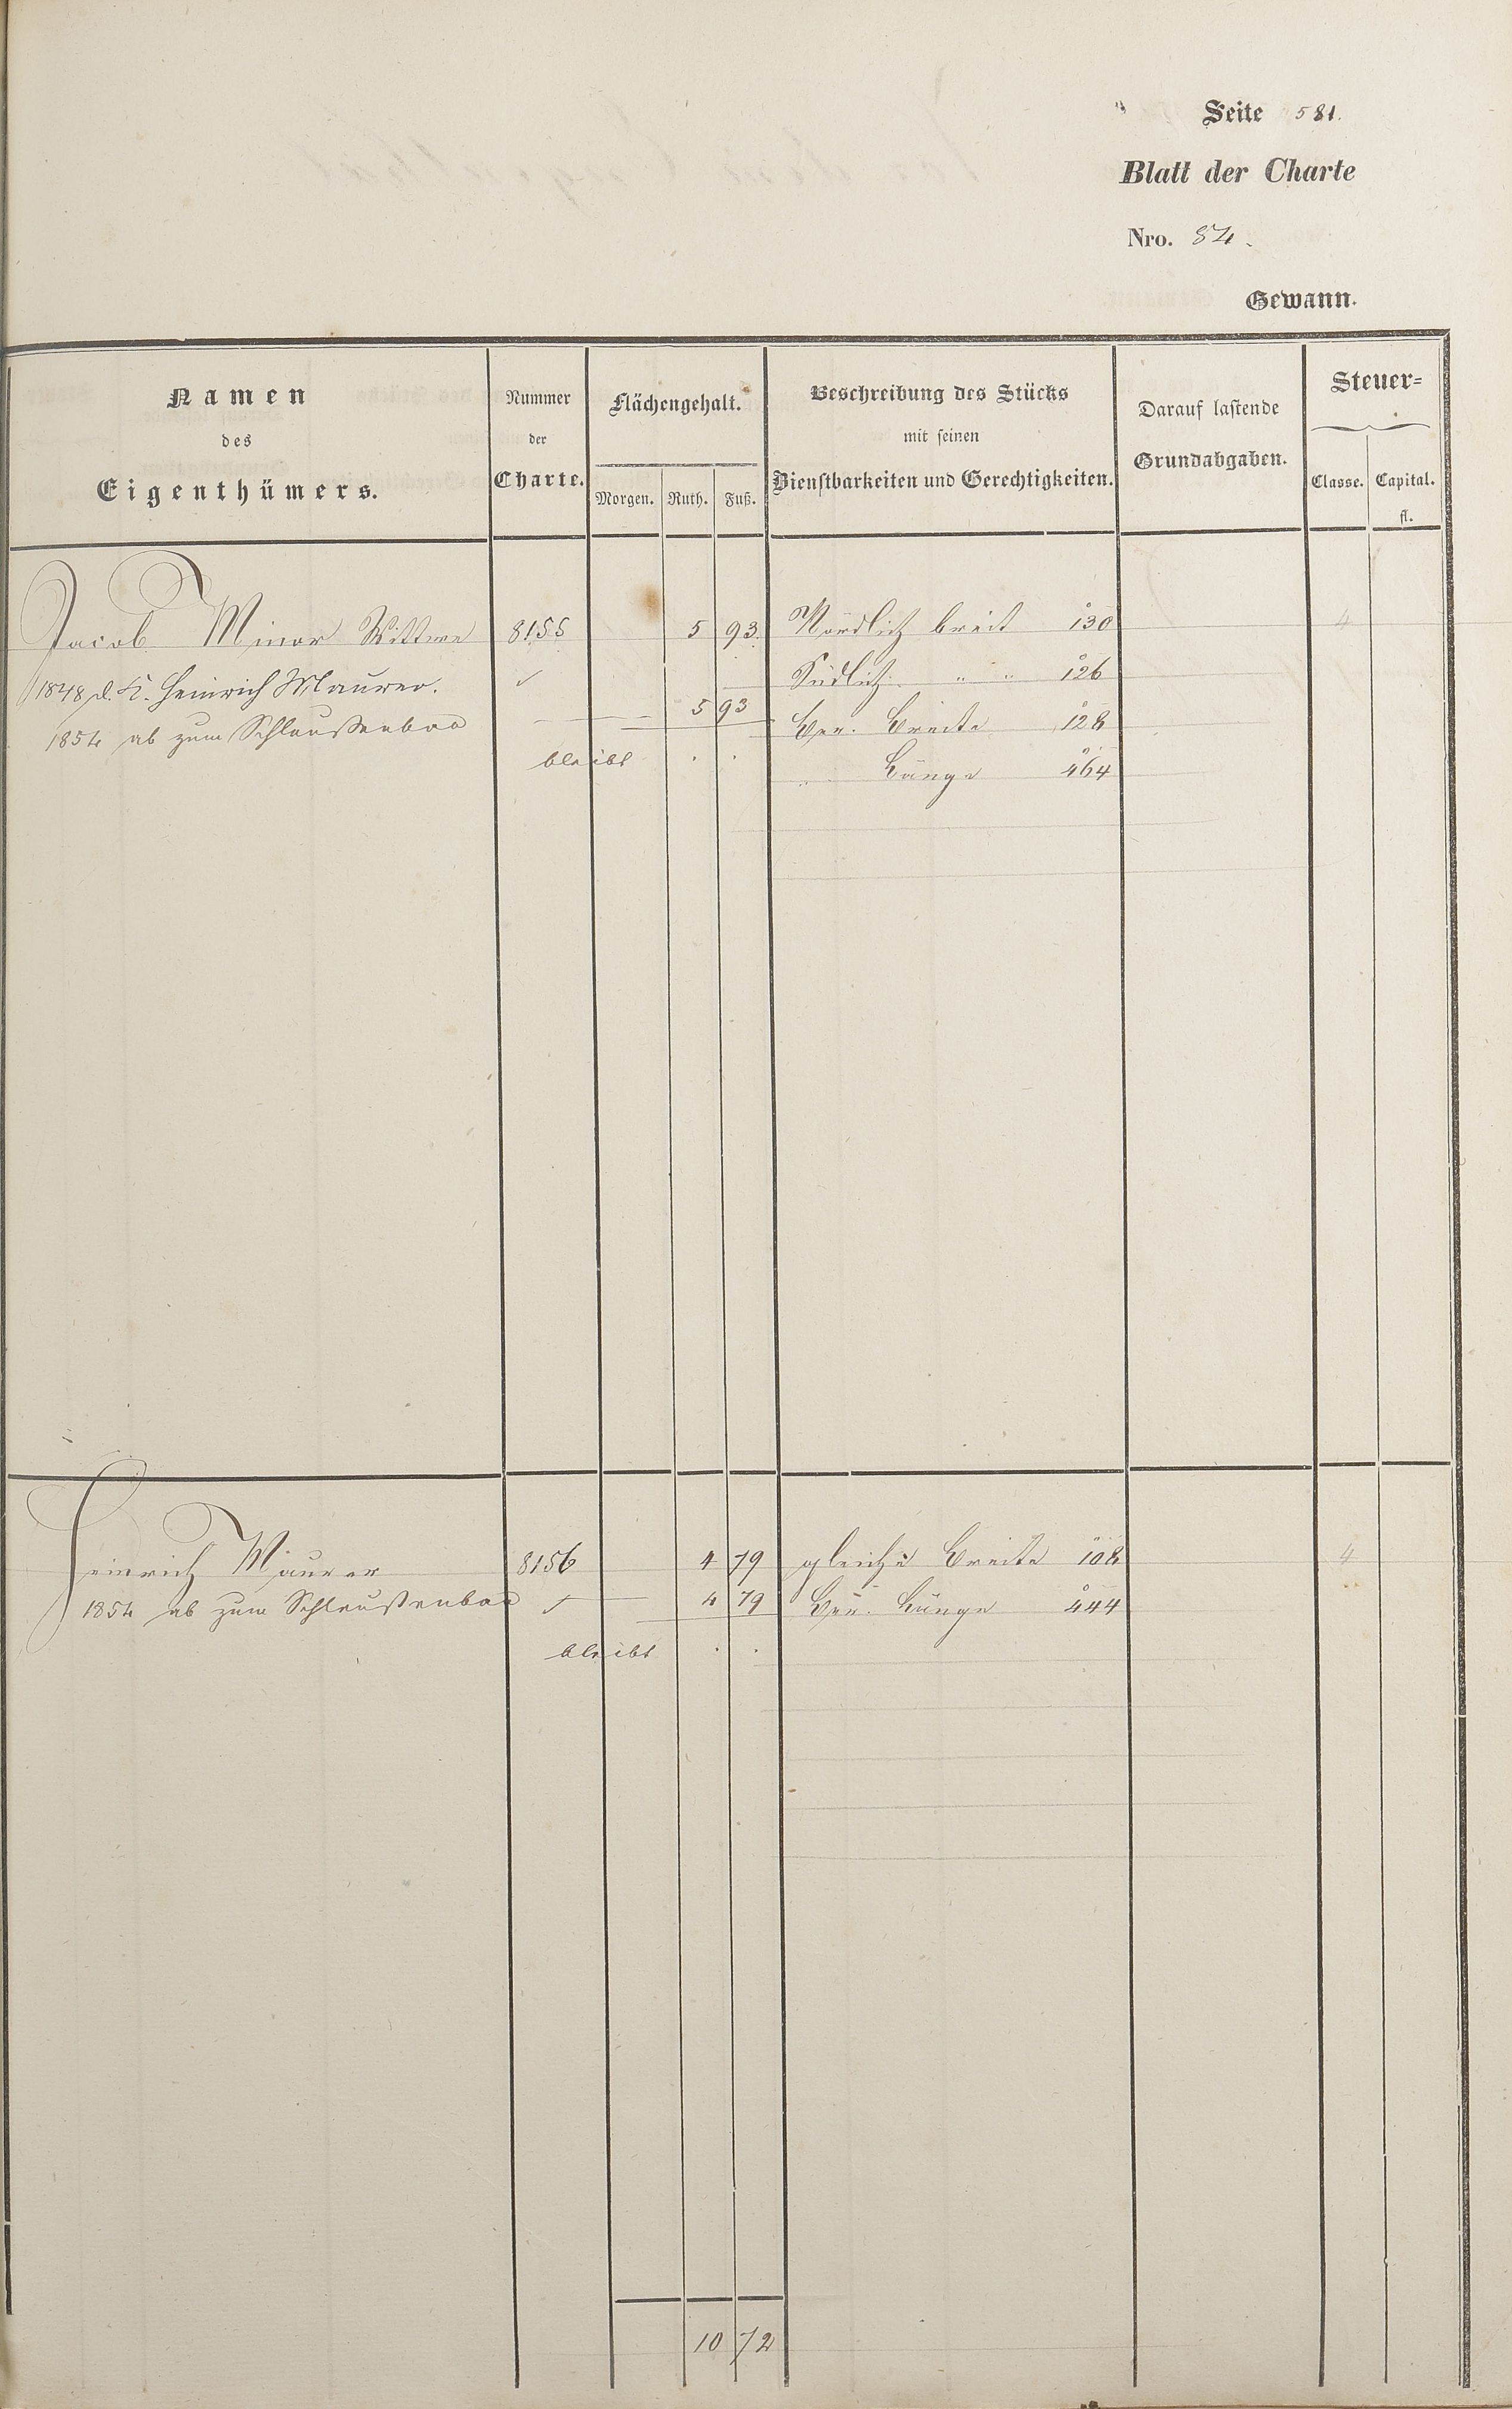 Seite 581.
Blatt der Charte
Nro. 84.
Gewann.
Namen des Eigenthümers.
Nummer der Charte.
Flächengehalt.
Morgen. Ruth. Fuß.
Beschreibung des Stücks mit seinen Dienstbarkeiten und Gerechtigkeiten.
Darauf lastende Grundabgaben.
Steuer=
Classe. Capital.
fl.
Jacob Minor Wittwe 8155 5 93. Nördlich breit 130 4
1848 d. K. Heinrich Maurer. Südlich " " 126
1854 ab zum Schleußenbau 5 93 Ber. Breite 128
bleibt . . Länge 464
Heinrich Maurer 8156 4 79 gleiche Breite 108 4
1854 ab zum Schleußenbau 4 79 Ber. Länge 444
bleibt . .
10 72